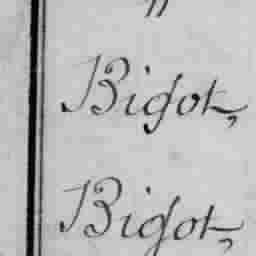 "
Bigot,
Bigot,